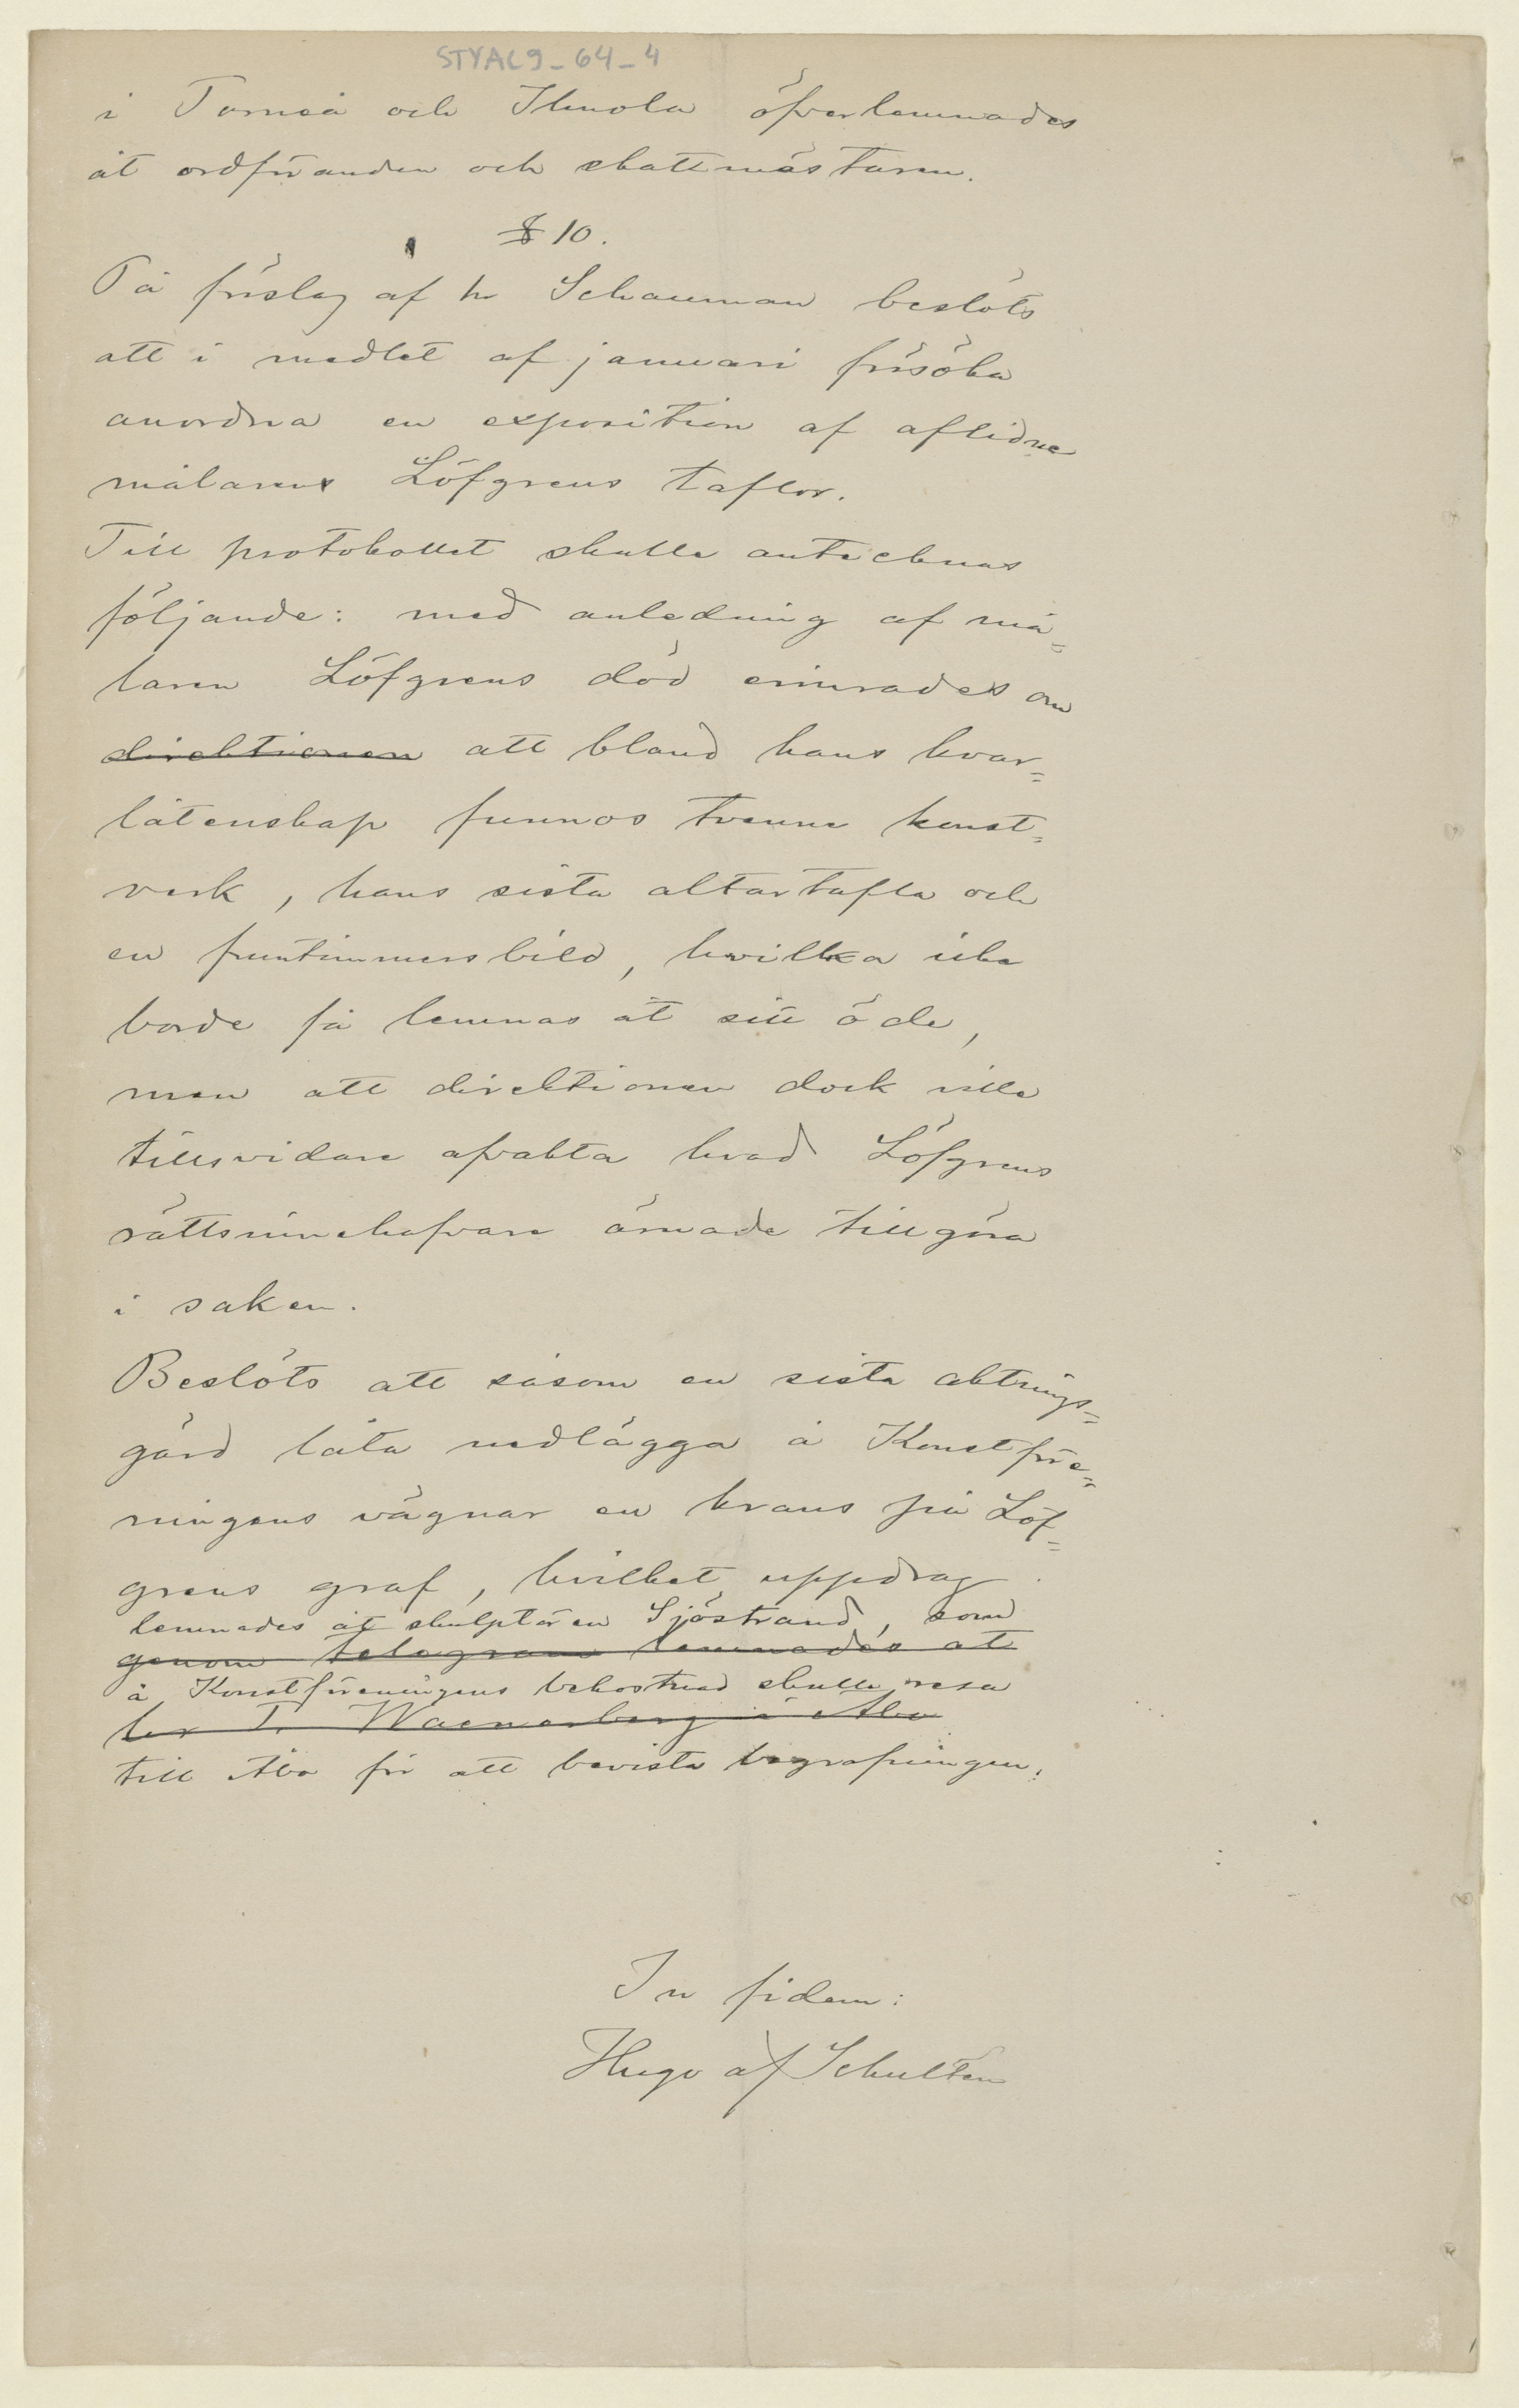 STYAL9_64_4
i Torneå och Ilmola öfverlemnades
åt ordföranden och skattmästaren.
§ 10.
På förslag af hr Schauman beslöts
att i medlet af januari försöka
anordna en exposition af aflidne
målarens Löfgrens taflor.
Till protokollet skulle antecknas
följande: med anledning af må=
laren Löfgrens död erinrades om
direktionen att bland hans kvar=
låtenskap funnos tvenne konst=
verk, hans sista altartafla och
en fruntimmersbild, hvilka icke
borde få lemnas åt sitt öde,
men att direktionen dock ville
tillsvidare afvakta hvad Löfgrens
rättsinnehafvare ärnade tillgöra
i saken.
Beslöts att såsom en sista aktnings=
gärd låta nedlägga å Konstföre=
ningens vägnar en krans på Löf=
grens graf, hvilket uppdrag
lemnades åt skulptören Sjöstrand, som
genom telegram lemnades åt
å Konstföreningens bekostnad skulle resa
hr T. Waenerberg i Åbo
till Åbo för att bevista begrafningen.
In fidem:
Hugo af Schultén